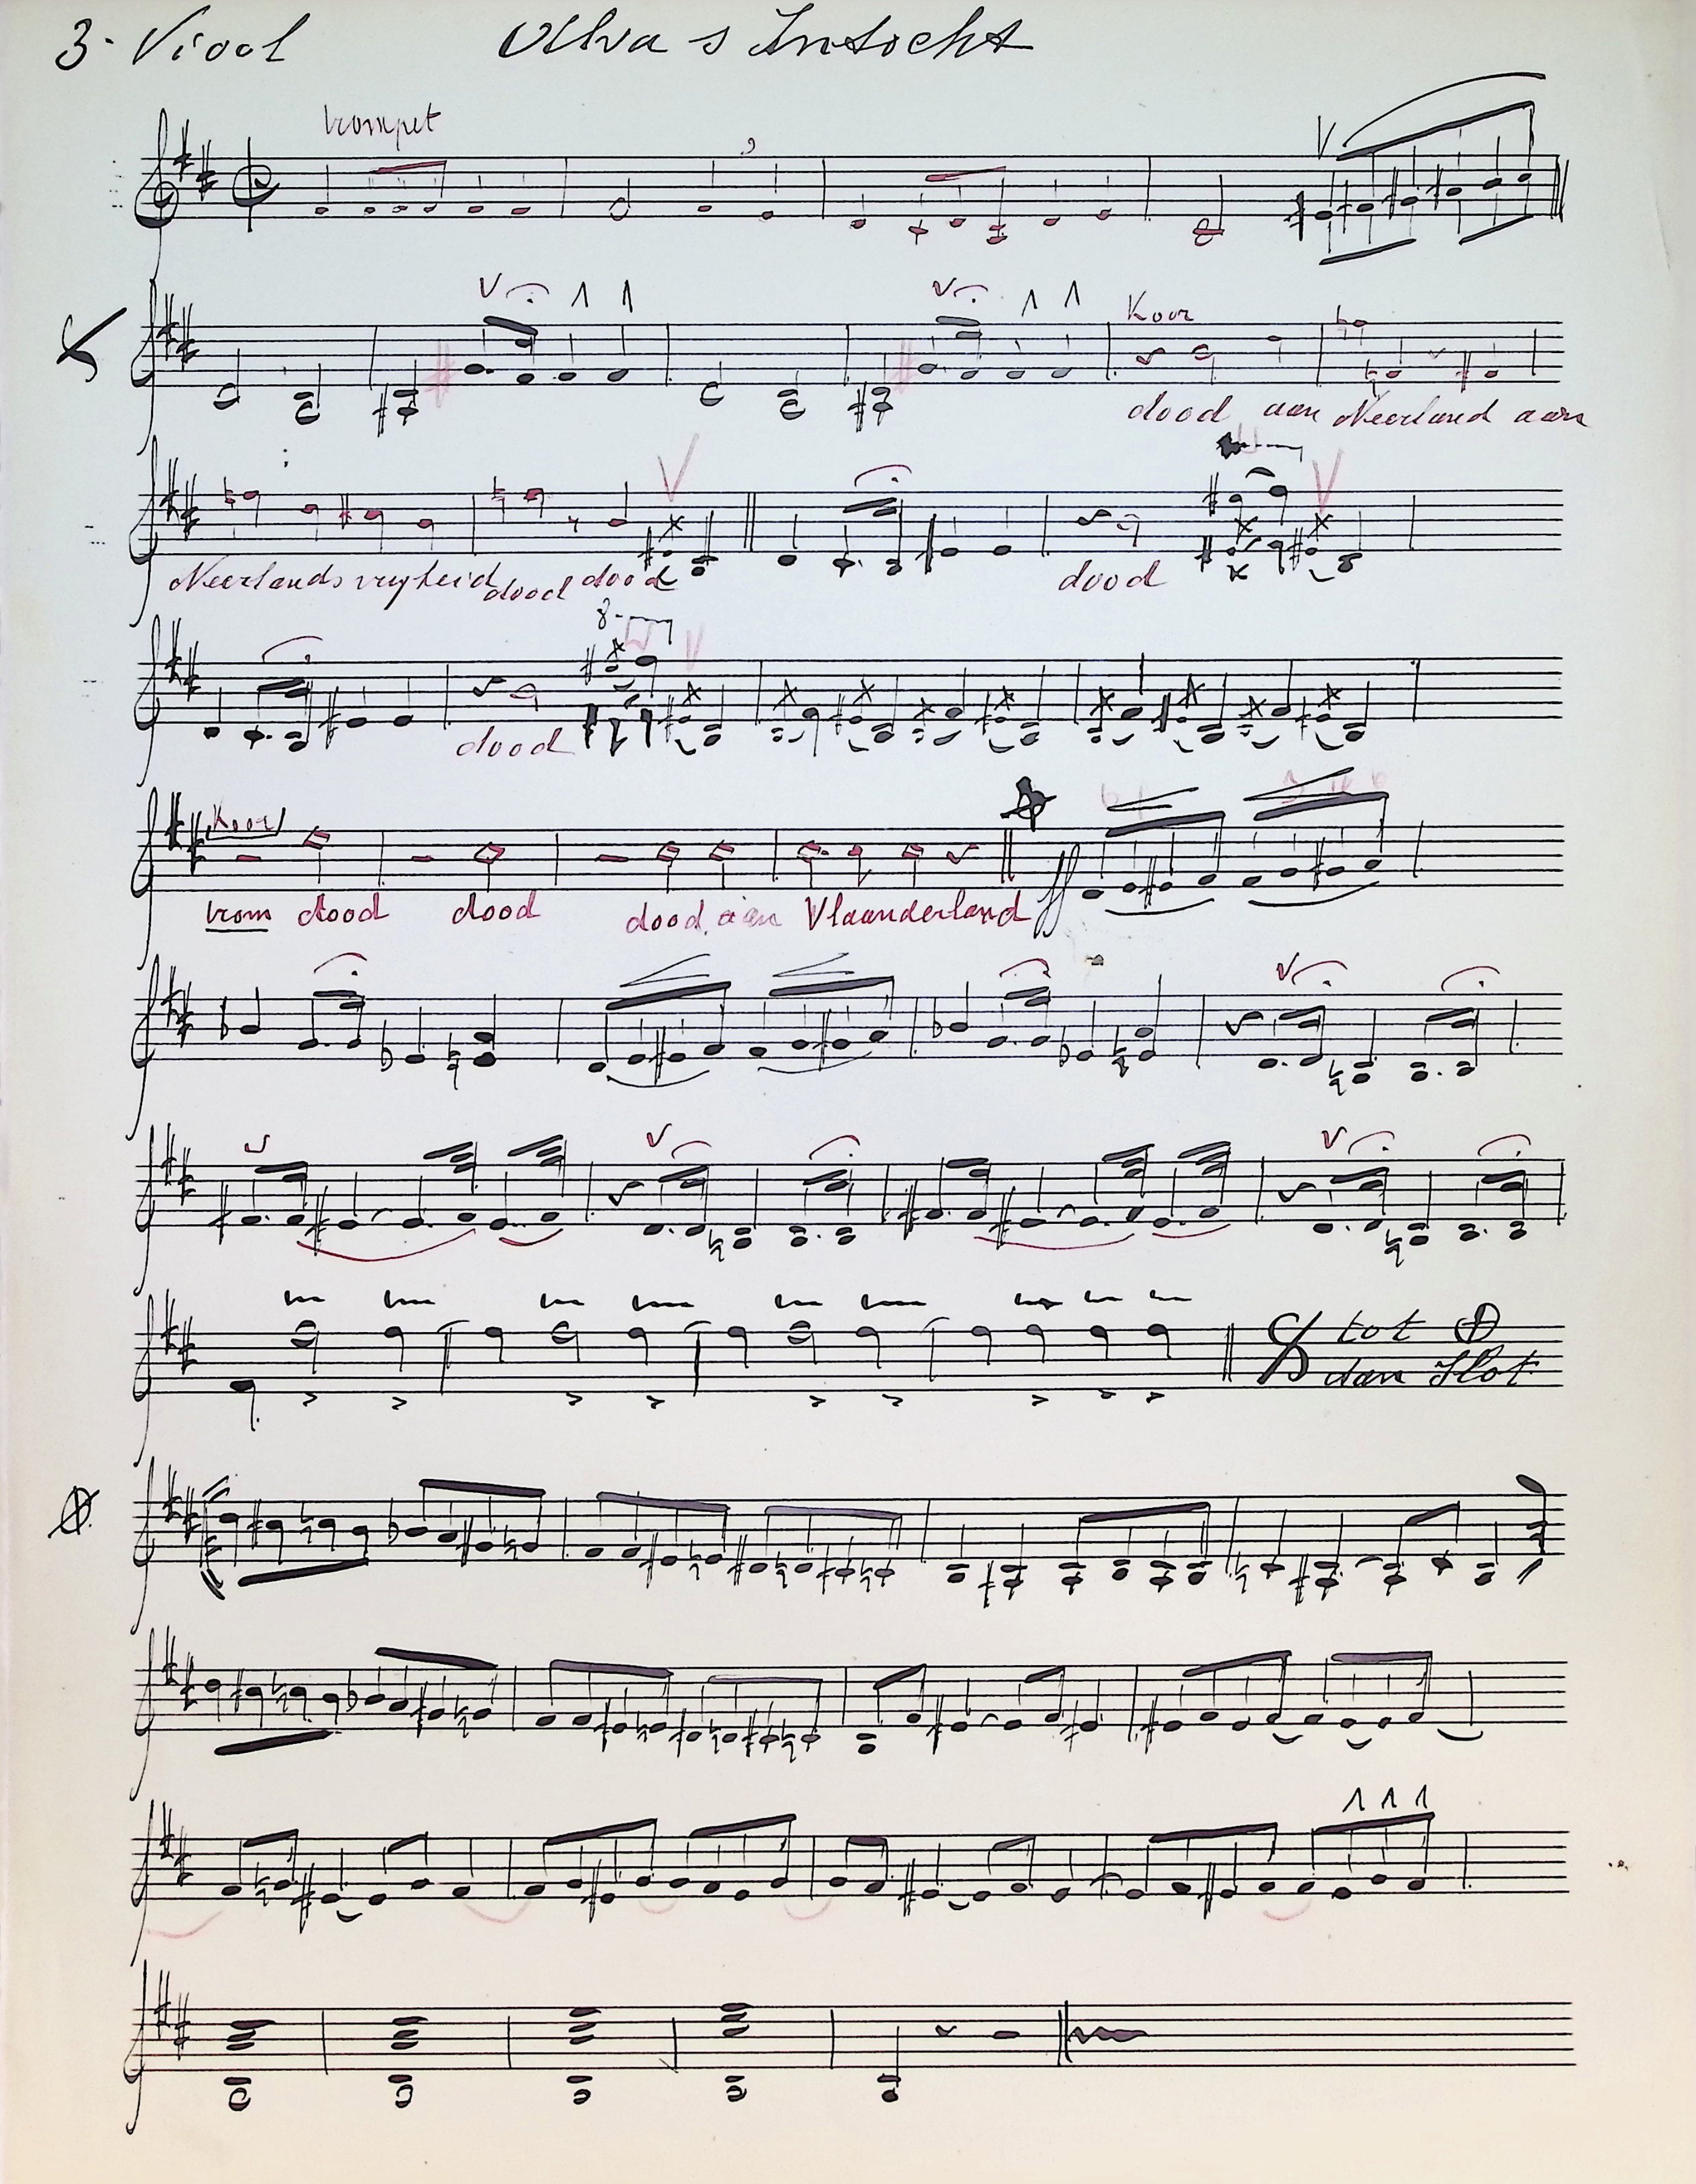 3. Viool Alva's Intocht
trompet
Koor
dood aan Neerland aan
Neerlands vryheid dood dood dood
8
dood
Koor
trom dood dood dood aan Vlaanderland ff
tot
dan Slot